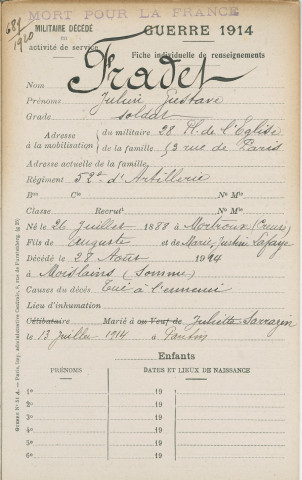 MORT POUR LA FRANCE
681/1920
MILITAIRE DÉCÉDÉ
en
activité de service
GUERRE 1914
Fiche individuelle de renseignements
Nom Fradet
Prénoms Julien Gustave
Grade soldat
Adresse à la mobilisation { du militaire 28 Pl. de l'Eglise
de la famille 53 rue de Paris
Adresse actuelle de la famille
Régiment 52e d'Artillerie
Bon Cie No Mle
Classe Recrut No Mle
Né le 26 Juillet 1888 à Mortroux (Creuse)
Fils de Auguste et de Marie, Justine Lafaye
Décédé le 28 Août 1914
à Moislains (Somme)
Causes du décès Tué à l'ennemi
Lieu d'inhumation
Célibataire. Marié à ou Veuf de Juliette Sarrazin
le 13 Juillet 1914 à Pantin
Enfants
PRÉNOMS DATES ET LIEUX DE NAISSANCE
1o 19
2o 19
3o 19
4o 19
5o 19
6o 19